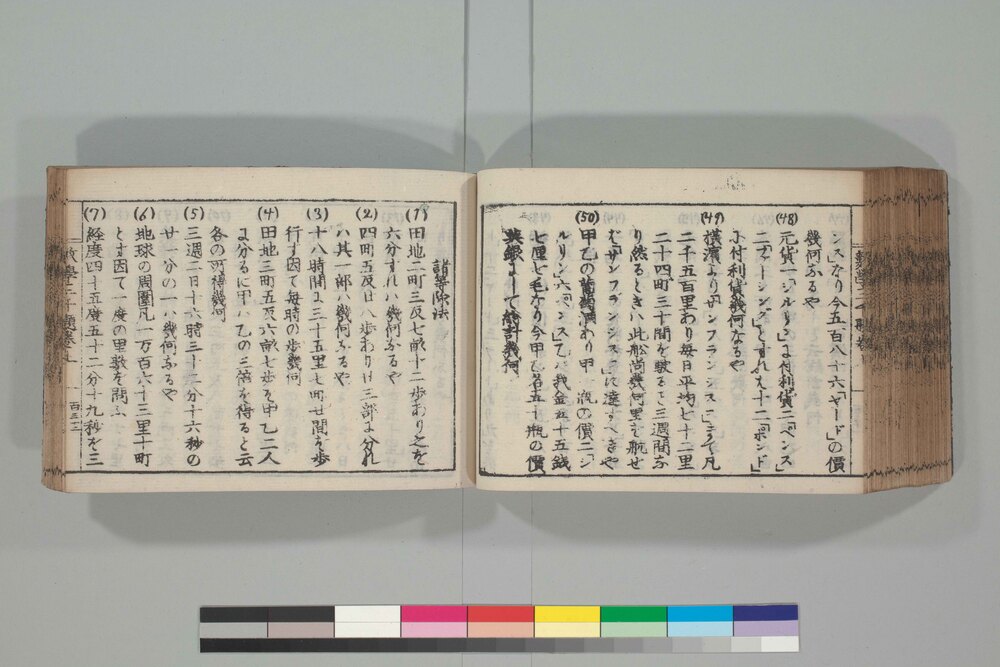 ンスなり今五百八十六「ヤード」の價
幾何なるや
(48) 元貨一「シルリング」に付利貨二「ペンス」
二「フアーシング」とすれば十二「ポンド」
に付利貨幾何なるや
(49) 横濱より「サンフランシスコ」まで凡
二千五百里あり毎日平均七十二里
二十四町三十間を駛ること三週間な
り然るときハ此舩尚幾何里を航せ
ば「サンフランシスコ」に達すべきや
(50) 甲乙の葡萄酒あり甲一瓶の價二「シ
ルリング」六「ペンス」乙ハ我金五十五銭
七厘七毛なり今甲乙各五十瓶の價
英銀にして総計幾何
諸等除法
(1) 田地二町三反七畝十二歩あり之を
六分すれハ幾何なるや
(2) 四町五反 八歩あり 三部に分れ
ハ其一部ハ幾何なるや
(3) 十八時間に三十五里七町廿間を歩
行す因て毎時の歩幾何
(4) 田地三町五反六畝七歩を甲乙二人
に分るに甲ハ乙の三倍を得ると云
各の所得幾何
(5) 三週二日十六時三十二分十六秒の
廿一分の一ハ幾何なるや
(6) 地球の周圍凡一万百六十三里十町
とす因て一度の里数を問ふ
(7) 経度四十五度五十二分十九秒を三
百三三